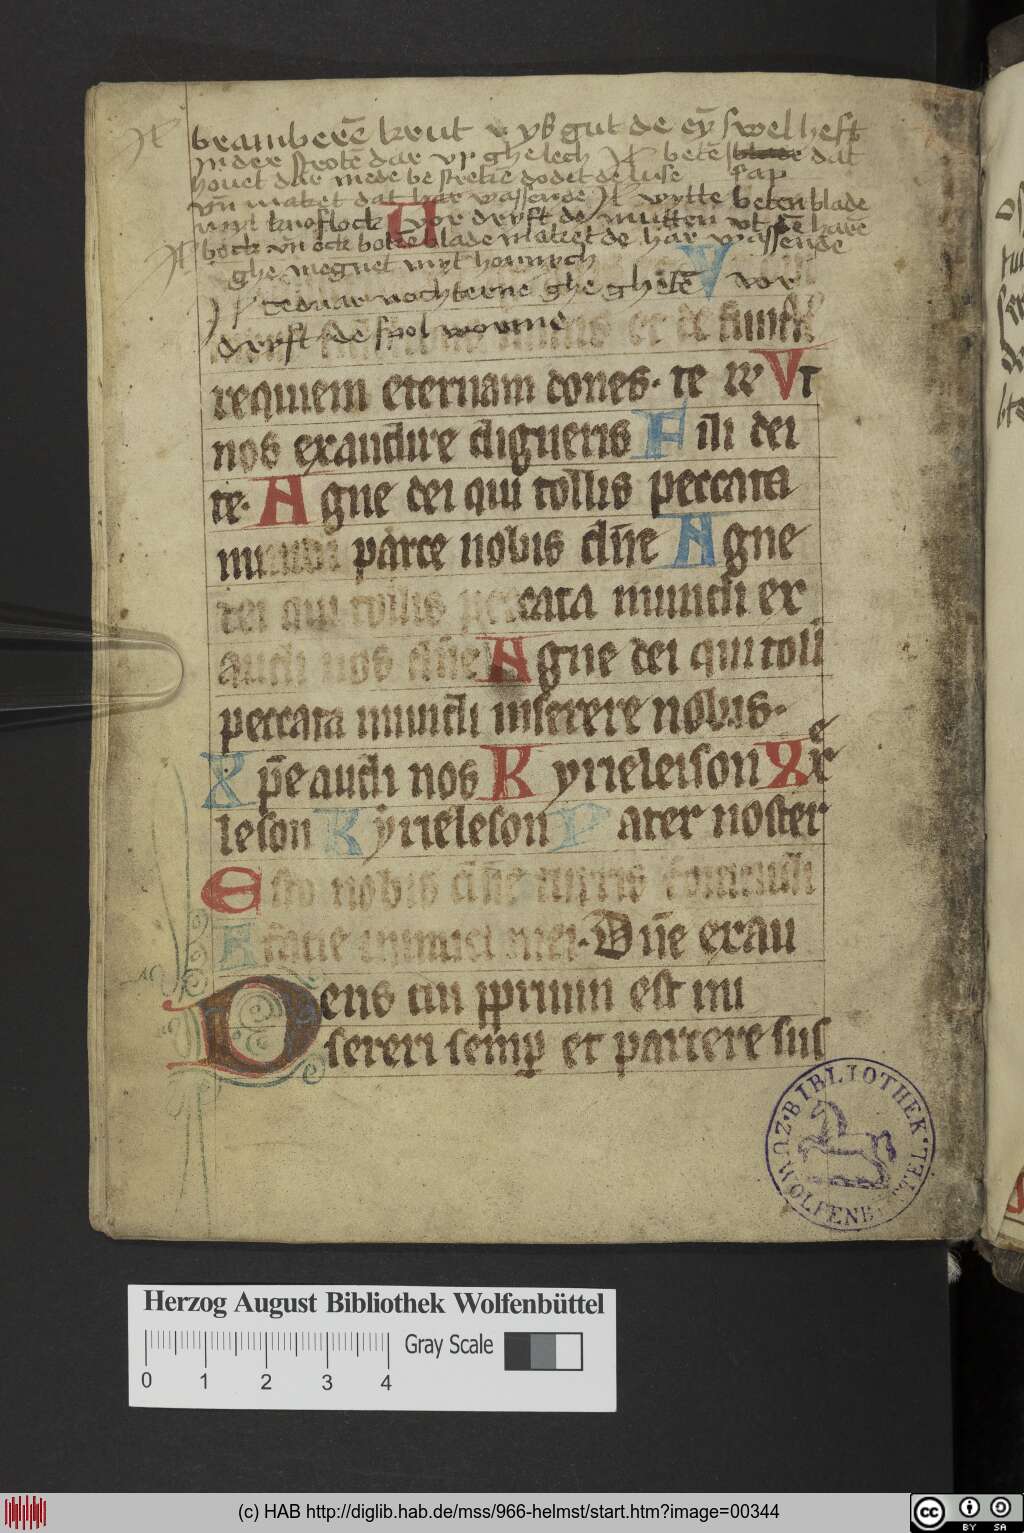 bramberē krut ys gut de eȳ swel heft
in der strote dar vp ghelech It betē blade dat
houet dar mede bestreke dodet de luse sap
vn̄ maket dat har wassende It wytte beten blade
myt knoflock vor dryft de mutten vt dē harē
It bock vn̄ ock bokē blade maket de har wassende
ghe megnet myt honnych
It te duar nochterne ghe ghetē V vor
dryft de spol worme
et de
requiem eternam dones· te rr Vt
nos exaudire digneris Fili dei
te· Agne dei qui tollis peccata
mundi parce nobis dn̄e Agne
dei qui tollis peccata mundi ex
audi nos dn̄e Agne dei qui tolli
peccata mundi miserere nobis·
Xpe audi nos Kyrieleison Xr̄e
leson Kyrieleson Pater noster
Esto nobis dn̄e turris fortitudi
A facie inimici mei· Dn̄e exau
Deus cui pprium est mi
sereri semp et parcere sus
BIBLIOTHEK· ZU· WOLFENBÜTTEL·
Herzog August Bibliothek Wolfenbüttel
Gray Scale
0 1 2 3 4
(c) HAB http://diglib.hab.de/mss/966-helmst/start.htm?image=00344
cc BY SA